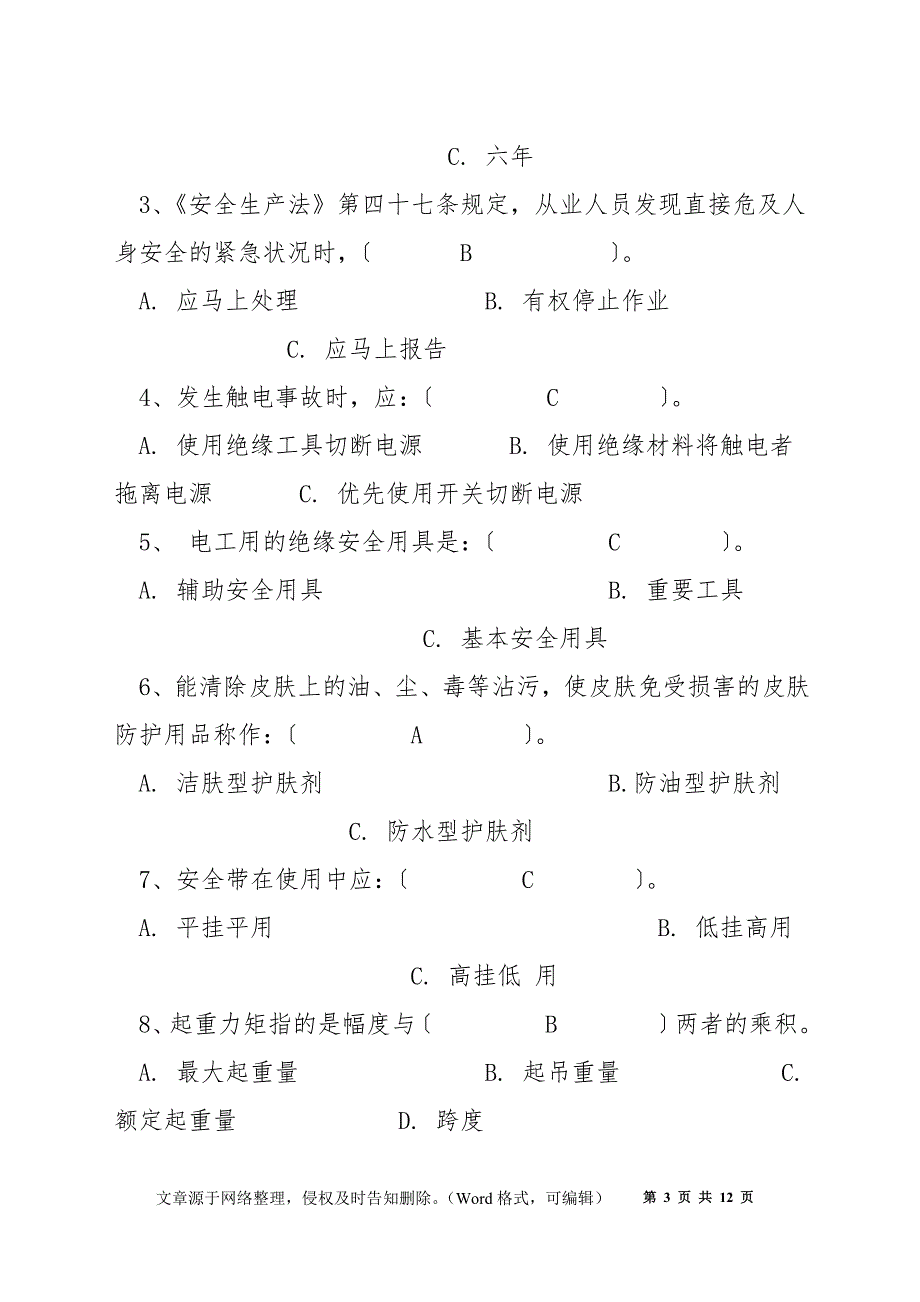 C. 六年
3、《安全生产法》第四十七条规定，从业人员发现直接危及人
身安全的紧急状况时，〔 B 〕。
A. 应马上处理 B. 有权停止作业
C. 应马上报告
4、发生触电事故时，应：〔 C 〕。
A. 使用绝缘工具切断电源 B. 使用绝缘材料将触电者
拖离电源 C. 优先使用开关切断电源
5、 电工用的绝缘安全用具是：〔 C 〕。
A. 辅助安全用具 B. 重要工具
C. 基本安全用具
6、能清除皮肤上的油、尘、毒等沾污，使皮肤免受损害的皮肤
防护用品称作：〔 A 〕。
A. 洁肤型护肤剂 B.防油型护肤剂
C. 防水型护肤剂
7、安全带在使用中应：〔 C 〕。
A. 平挂平用 B. 低挂高用
C. 高挂低 用
8、起重力矩指的是幅度与〔 B 〕两者的乘积。
A. 最大起重量 B. 起吊重量 C.
额定起重量 D. 跨度
文章源于网络整理，侵权及时告知删除。（Word 格式，可编辑） 第 3 页 共 12 页